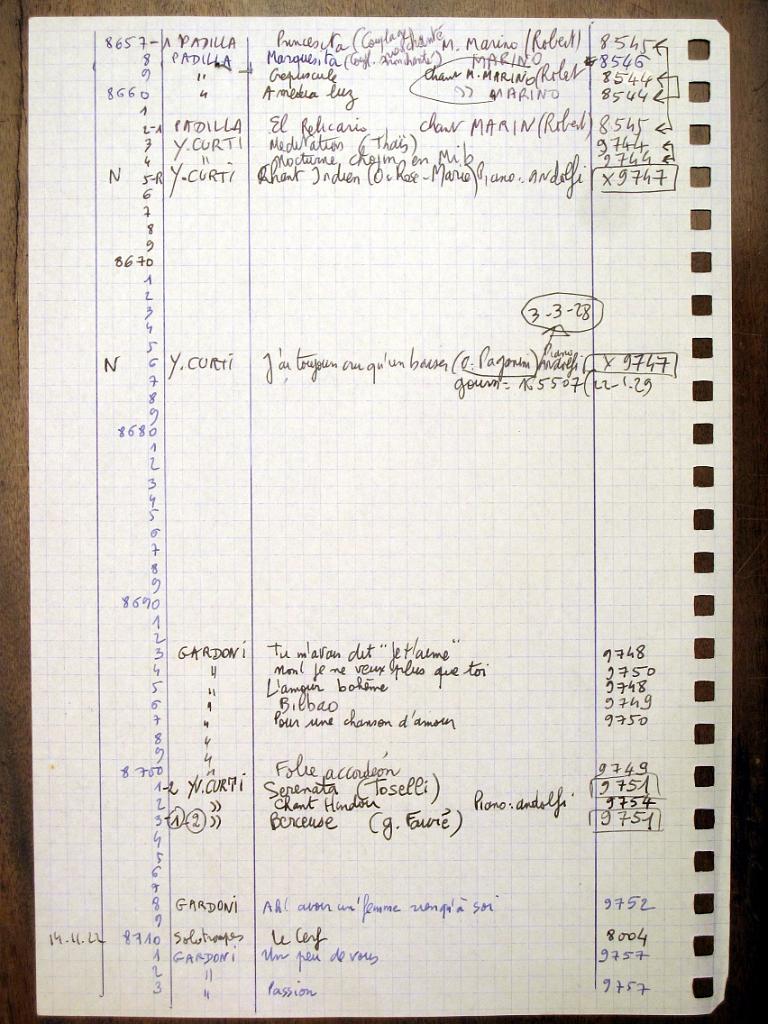 8657-1 PADILLA Princesita (Couplage non chanté) M. Marino (Robert) 8545
8 PADILLA Marquesita (Coupl. non chanté) MARINO 8546
9 " Crepuscule chant M. MARINO (Robert 8544
8660 " America luz " MARINO 8544
1
2-1 PADILLA El Relicario chant MARIN (Robert) 8545
3 Y. CURTI Meditation (Thaïs) 9744
4 " Nocturne Chopin en Mib 9744
N 5-R Y. CURTI Chant Indien (O. Rose-Marie) Piano: andolfi X 9747
6
7
8
9
8670
1
2
3 3-3-28
4
5
N 6 Y. CURTI J'ai toujours cru qu'un baiser (O. Paganini) Piano andolfi X 9747
7 gourn = 165507 (22-1.29
8
9
8680
1
2
3
4
5
6
7
8
9
8690
1
2
3 GARDONI Tu m'avais dit "Je t'aime" 9748
4 " non! je ne veux plus que toi 9750
5 " L'amour bohême 9748
6 " Bilbao 9749
7 " Pour une chanson d'amour 9750
8 "
9 "
8700 " Folie accordéon 9749
1-2 YV. CURTI Serenata (Toselli) 9751
2 " Chant Hindou Piano: andolfi 9754
3-1-2 " Berceuse (G. Fauré) 9751
4
5
6
7
8 GARDONI Ah! avoir un' femme rien qu'à soi 9752
9
14.11.22 8710 Solotrompes Le Cerf 8004
1 GARDONI Un peu de vous 9757
2 "
3 " Passion 9757